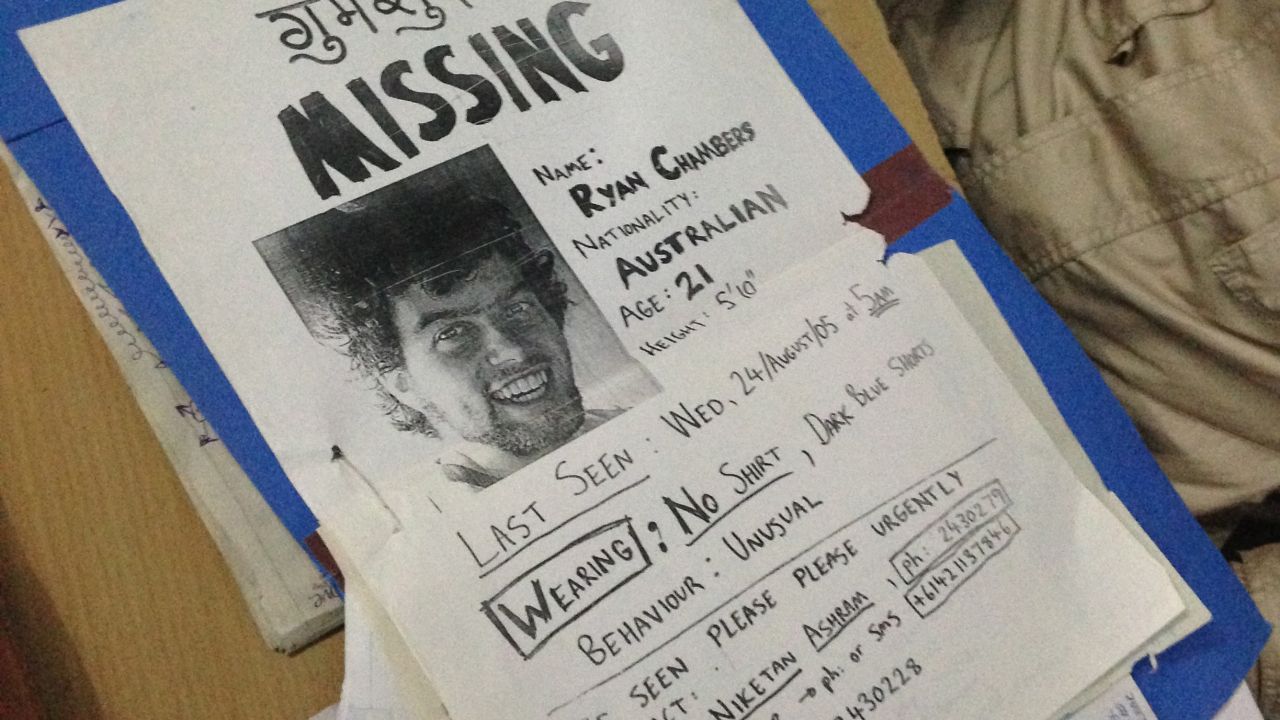 MISSING
NAME:
RYAN CHAMBERS
NATIONALITY:
AUSTRALIAN
AGE: 21
HEIGHT: 5'10"
LAST SEEN: WED, 24/AUGUST/05 at 5am
WEARING: NO SHIRT, DARK BLUE SHORTS
BEHAVIOUR: UNUSUAL
SEEN PLEASE PLEASE URGENTLY
NIKETAN ASHRAM, ph: 2430279
ph: or sms +61421137846
430228